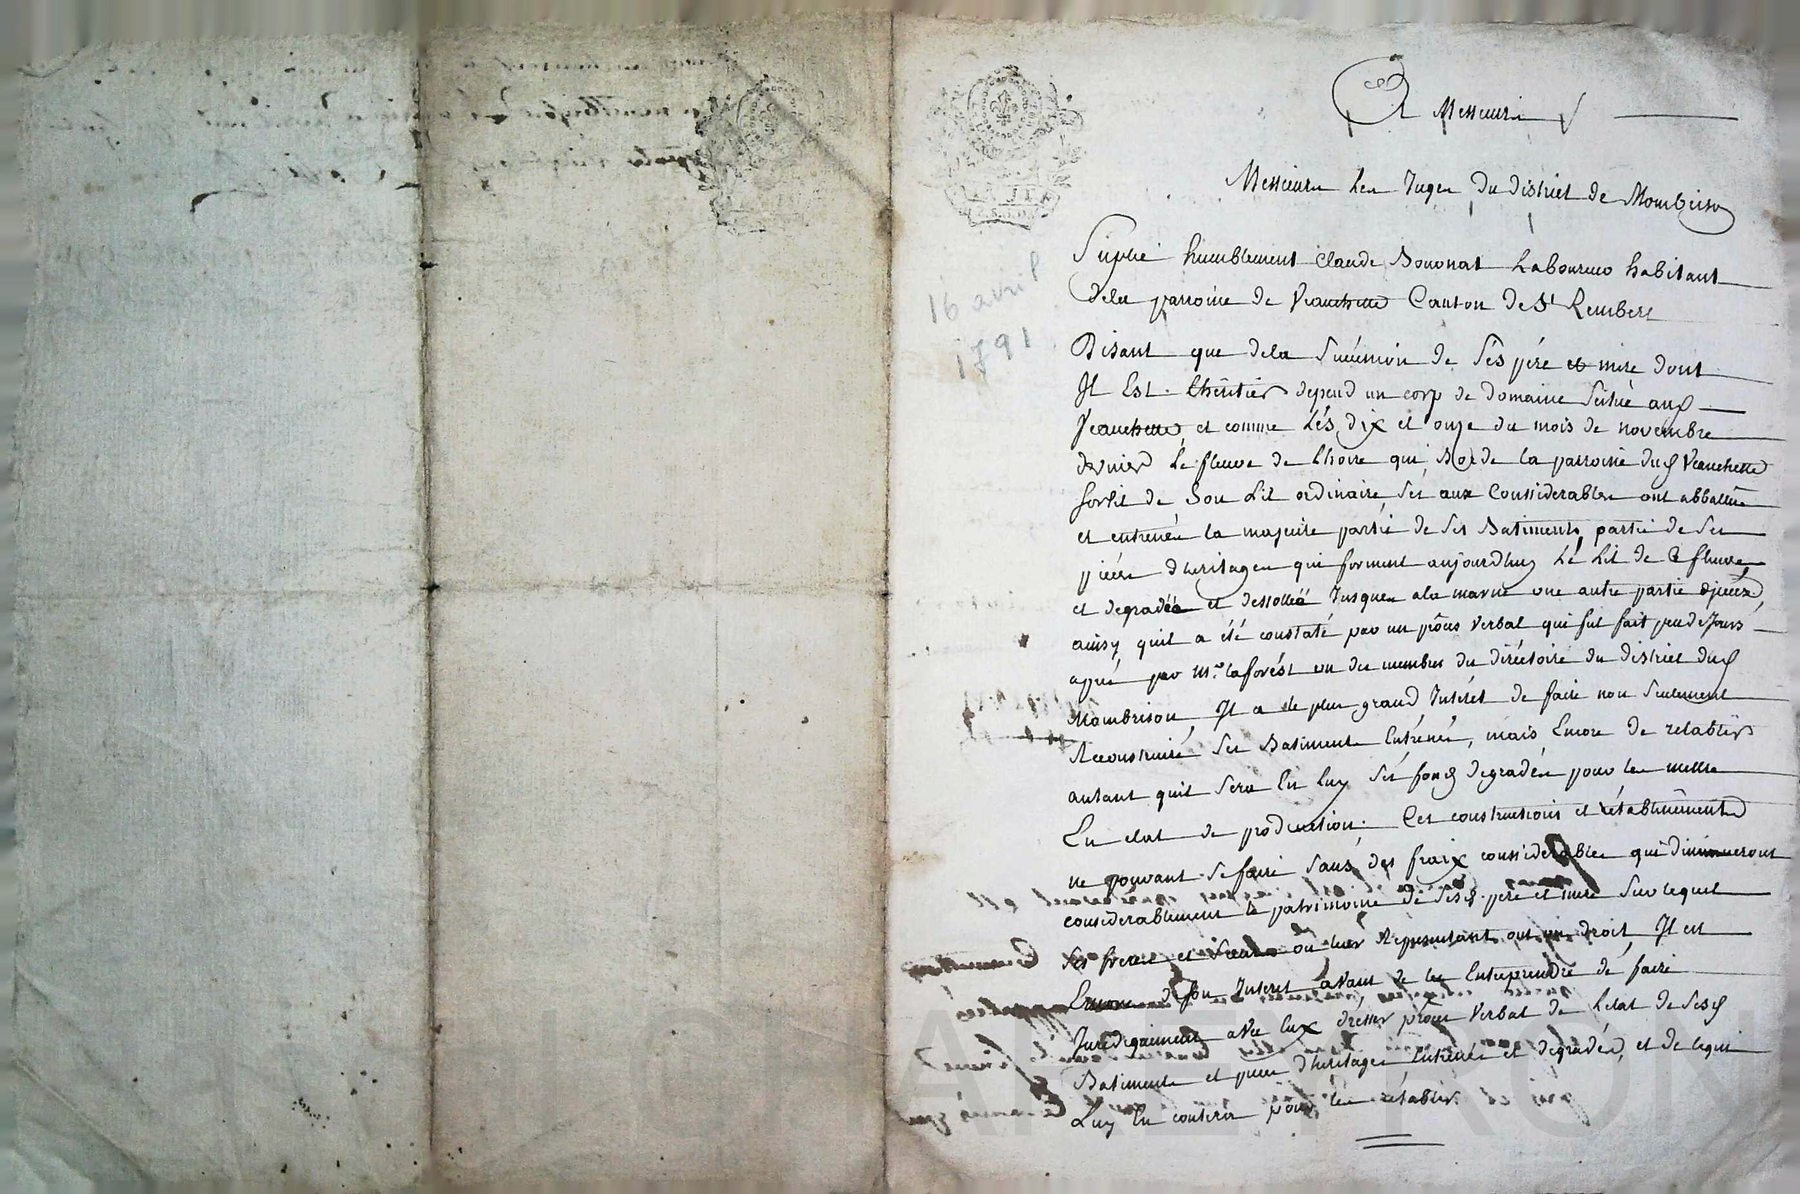 A Messieurs
Messieurs Les Juges Du District de Mombrison
Suplie humblement Claude Bouonat Laboureur habitant
dela parroisse de Veauchette Canton de St Rembert
Disant que dela Sucession de Sés pére et mere dont
Il Est lhéritier depend un corp de domaine Scitué aud
Veauchette et comme Lés dix et onze du mois de novembre
dernier Le fleuve de Lhoire qui Borde la parroisse dud Veauchette
sortit de Son Lit ordinaire Ses aux Considerables ont abbattue
et entrenés la majeure partie de Ses Batiments, partie de Ses
piéces dheritages qui forment aujourdhuy Le Lit de Ce fleuve
et degradée et dessollée Jusques ala marne une autre partie
ainsy quil a été constaté par un procés verbal qui fut fait peu de Jours
aprés par Mr. Laforest un des membres du diréctoire du district dud
Mombrison, Il a le plus grand Interét de faire non Seulement
Reconstruire Ses Batiments Entrénés, mais Encore de retablir
autant quil Sera En Luy Ses fonds degradés pour les mettre
En etat de production. Ces constructions et rétablissements
ne pouvant Se faire Sans des fraix considerables qui diminueront
considerablement le patrimoine de Sesd. pere et mere Sur lequel
Ses freres et Soeurs ou leurs Representant ont un droit, Il est
Encore de Son Interet avant de les Entreprendre de faire
Juridiquement avec Eux drésser procés Verbal de Létat de Sesd
Batiments et pieces dheritages Entrénés et degradés, et de cequi
Luy En coutera pour les rétablir
16 avril
1791